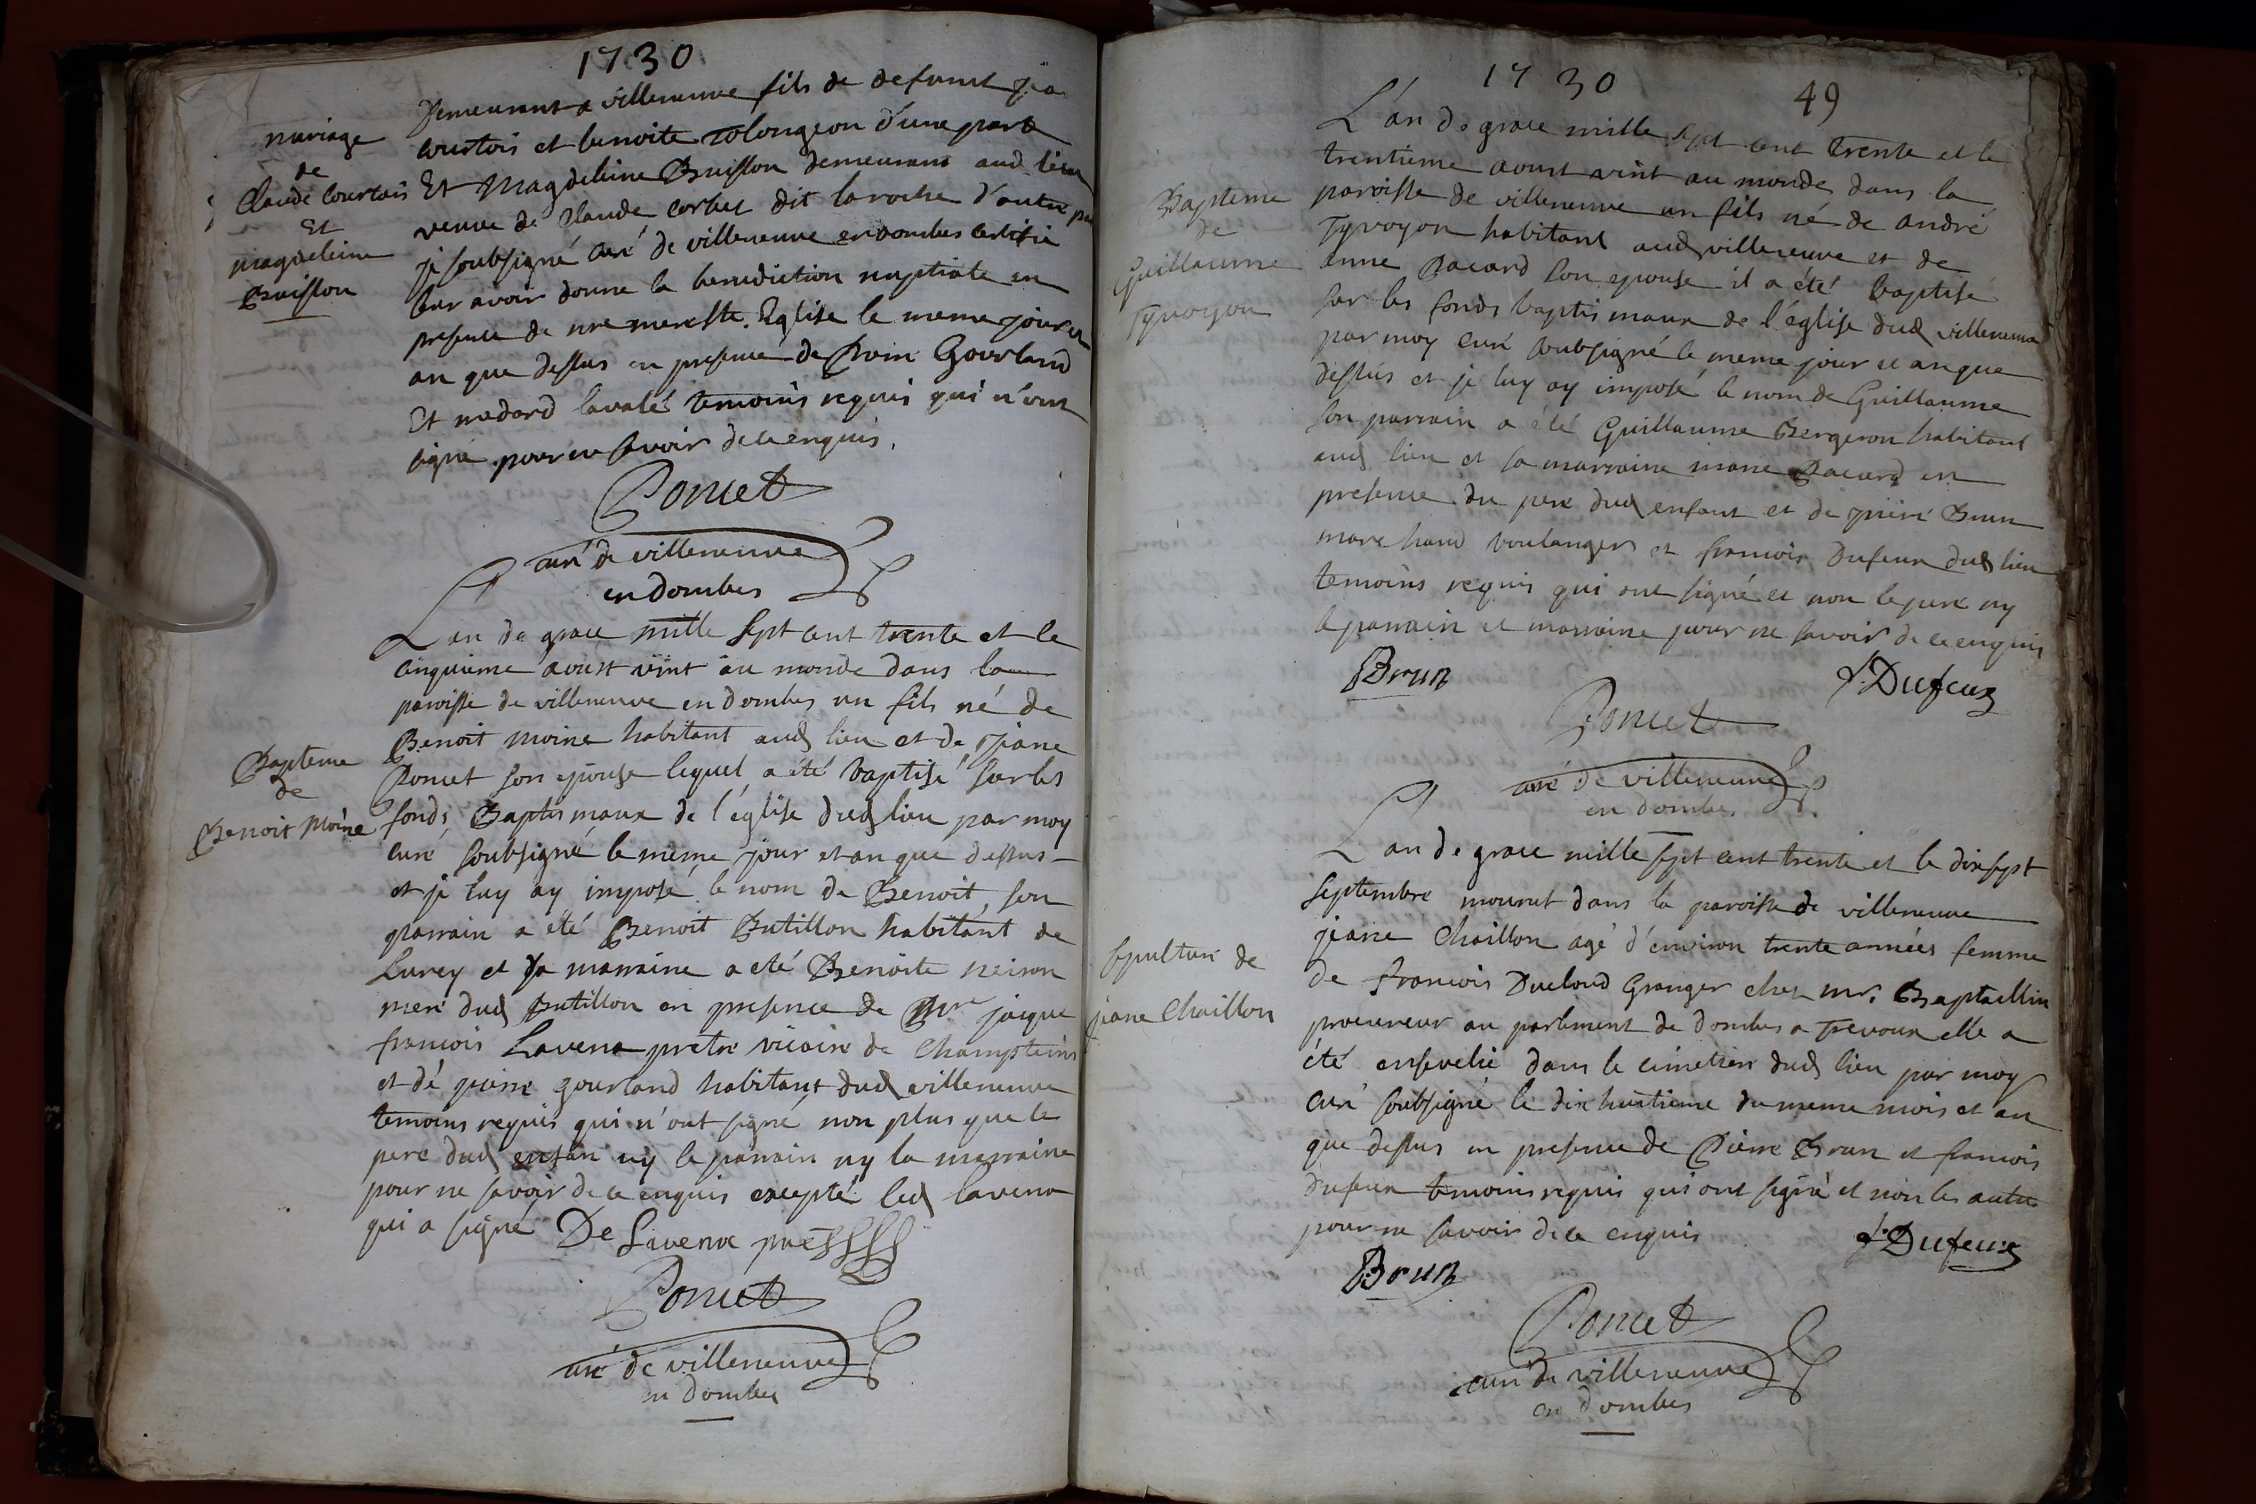 1730
mariage
de
Claude Courtois
Et
magdeleine
Buisson
Demeurant a villeneuve fils de defunct
courtois et benoite tolongeon d'une part
Et Magdeleine Buisson demeurant aud lieu
veuve de claude corbet dit laroche d'autre
je soubsigné curé de villeneuve en dombes certifie
leur avoir donne la benediction nuptiale en
presence de nre mere Ste. Eglise le meme jour et
an que dessus en presence de Gourland
Et medard lavalé temoins requis qui n'ont
signé pour ne savoir de ce enquis.
Poncet
curé de villeneuve
en dombes
Bapteme
de
Benoit Moine
L'an de grace mille sept cent trente et le
cinquieme aoust vint au monde dans la
paroisse de villeneuve en dombes un fils né de
Benoit moine habitant aud lieu et de jeane
Poncet son epouse lequel a été baptisé sur les
fonds Baptismaux de l'église dud lieu par moy
curé soubsigné le méme jour et an que dessus
et je luy ay imposé le nom de Benoit, son
parrain a été Benoit Butillon habitant de
Lurcy et sa marraine a eté Benoite
mere dud Butillon en presence de Mre jacque
francois Lavena pretre vicaire de Champteins
et dé pierre gourland habitant dud villeneuve
temoins requis qui n'ont signé non plus que le
pere dud enfan ny le parrain ny la marraine
pour ne savoir de ce enquis excepté led lavena
qui a signé De Lavena
Poncet
curé de villeneuve
en dombes
1730
49
Bapteme
de
Guillaume
Tyvoyon
L'an de grace mille sept cent trente et le
trentieme aoust vint au monde dans la
paroisse de villeneuve un fils né de andré
Tyvoyon habitant aud villeneuve et de
anne Bacard son epouse il a été baptisé
sur les fonds baptismaux de l'église dud villeneuve
par moy curé soubsigné le meme jour et an que
dessus et je luy ay imposé le nom de Guillaume
son parrain a été Guillaume Bergeron habitant
aud lieu et sa marraine marie Bacard en
presence du pere dud enfant et de pierre Brun
marchand boulanger et francois Dufeux dud lieu
temoins requis qui ont signé et non le pere ny
le parrain et marraine pour ne savoir de ce enquis
Brun
f. Dufeux
Poncet
curé de villeneuve
en dombes
Sepulture de
jeane Chaillon
L'an de grace mille sept cent trente et le dix sept
septembre mourut dans la paroisse de villeneuve
jeane Chaillon agé d'environ trente années femme
de francois Ducloud Granger chez mr. Baptaillin
procureur au parlement de dombes a Trevoux elle a
été ensevelie dans le cimetiere dud lieu par moy
curé soubsigné le dix huitieme du meme mois et an
que dessus en presence de Pierre Brun et francois
dufeux temoins requis qui ont signé et non les autres
pour ne savoir de ce enquis
Brun
f. Dufeux
Poncet
curé de villeneuve
en dombes